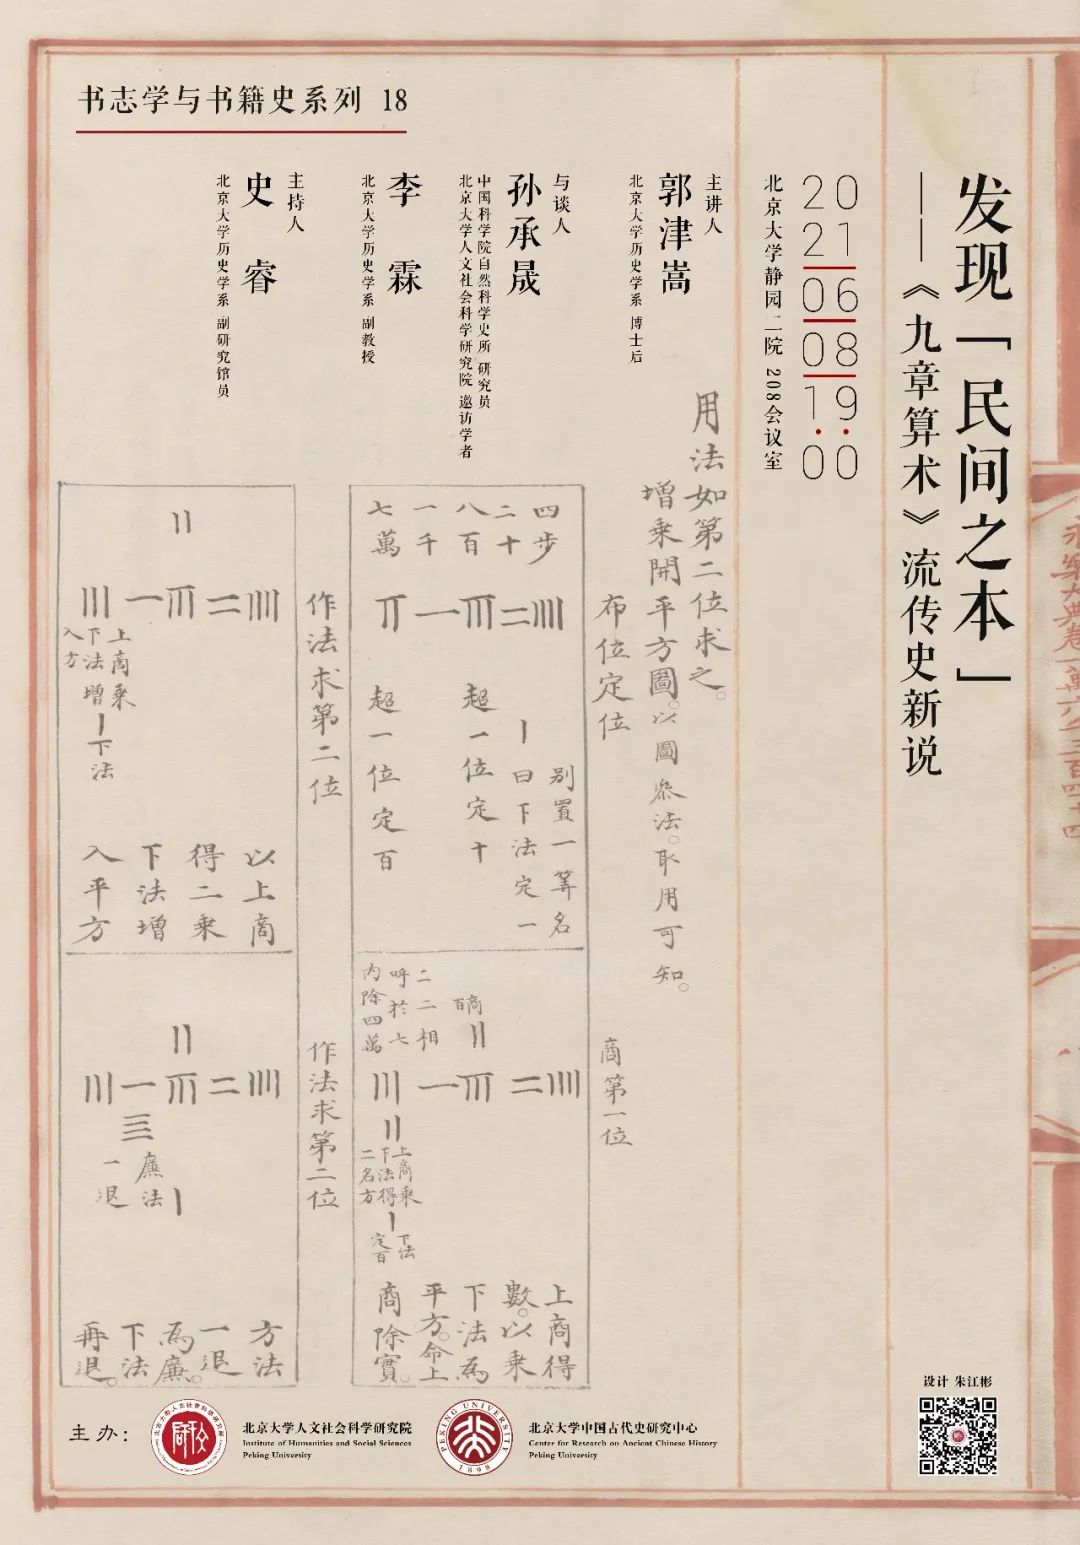 书志学与书籍史系列 18
发现「民间之本」
——《九章算术》流传史新说
2021
06
08
19:00
北京大学静园二院 208会议室
主讲人
郭津嵩
北京大学历史学系 博士后
与谈人
孙承晟
中国科学院自然科学史所 研究员
北京大学人文社会科学研究院 邀访学者
李霖
北京大学历史学系 副教授
主持人
史睿
北京大学历史学系 副研究馆员
永樂大典卷一萬六千三百四十四
用法如第二位求之。
增乘開平方圖。以圖眾法。取用可知。
布位定位
四步
二十
八百
一千
七萬
別置一筭名
曰下法定一
超一位定十
超一位定百
商第一位
商百
二二相
呼於七
內除四萬
上商乘
下法得
二名方
下法
定百
上商得
數。以乘
下法為
平方。命上
商除實。
作法求第二位
上商乘
下法增
入方
下法
以上商
得二乘
下法增
入平方
作法求第二位
廉法
一退
方法
一退
為廉。
下法
再退。
设计 朱江彬
主办：
北京大学人文社会科学研究院
Institute of Humanities and Social Sciences
Peking University
PEKING UNIVERSITY
1898
北京大学中国古代史研究中心
Center for Research on Ancient Chinese History
Peking University